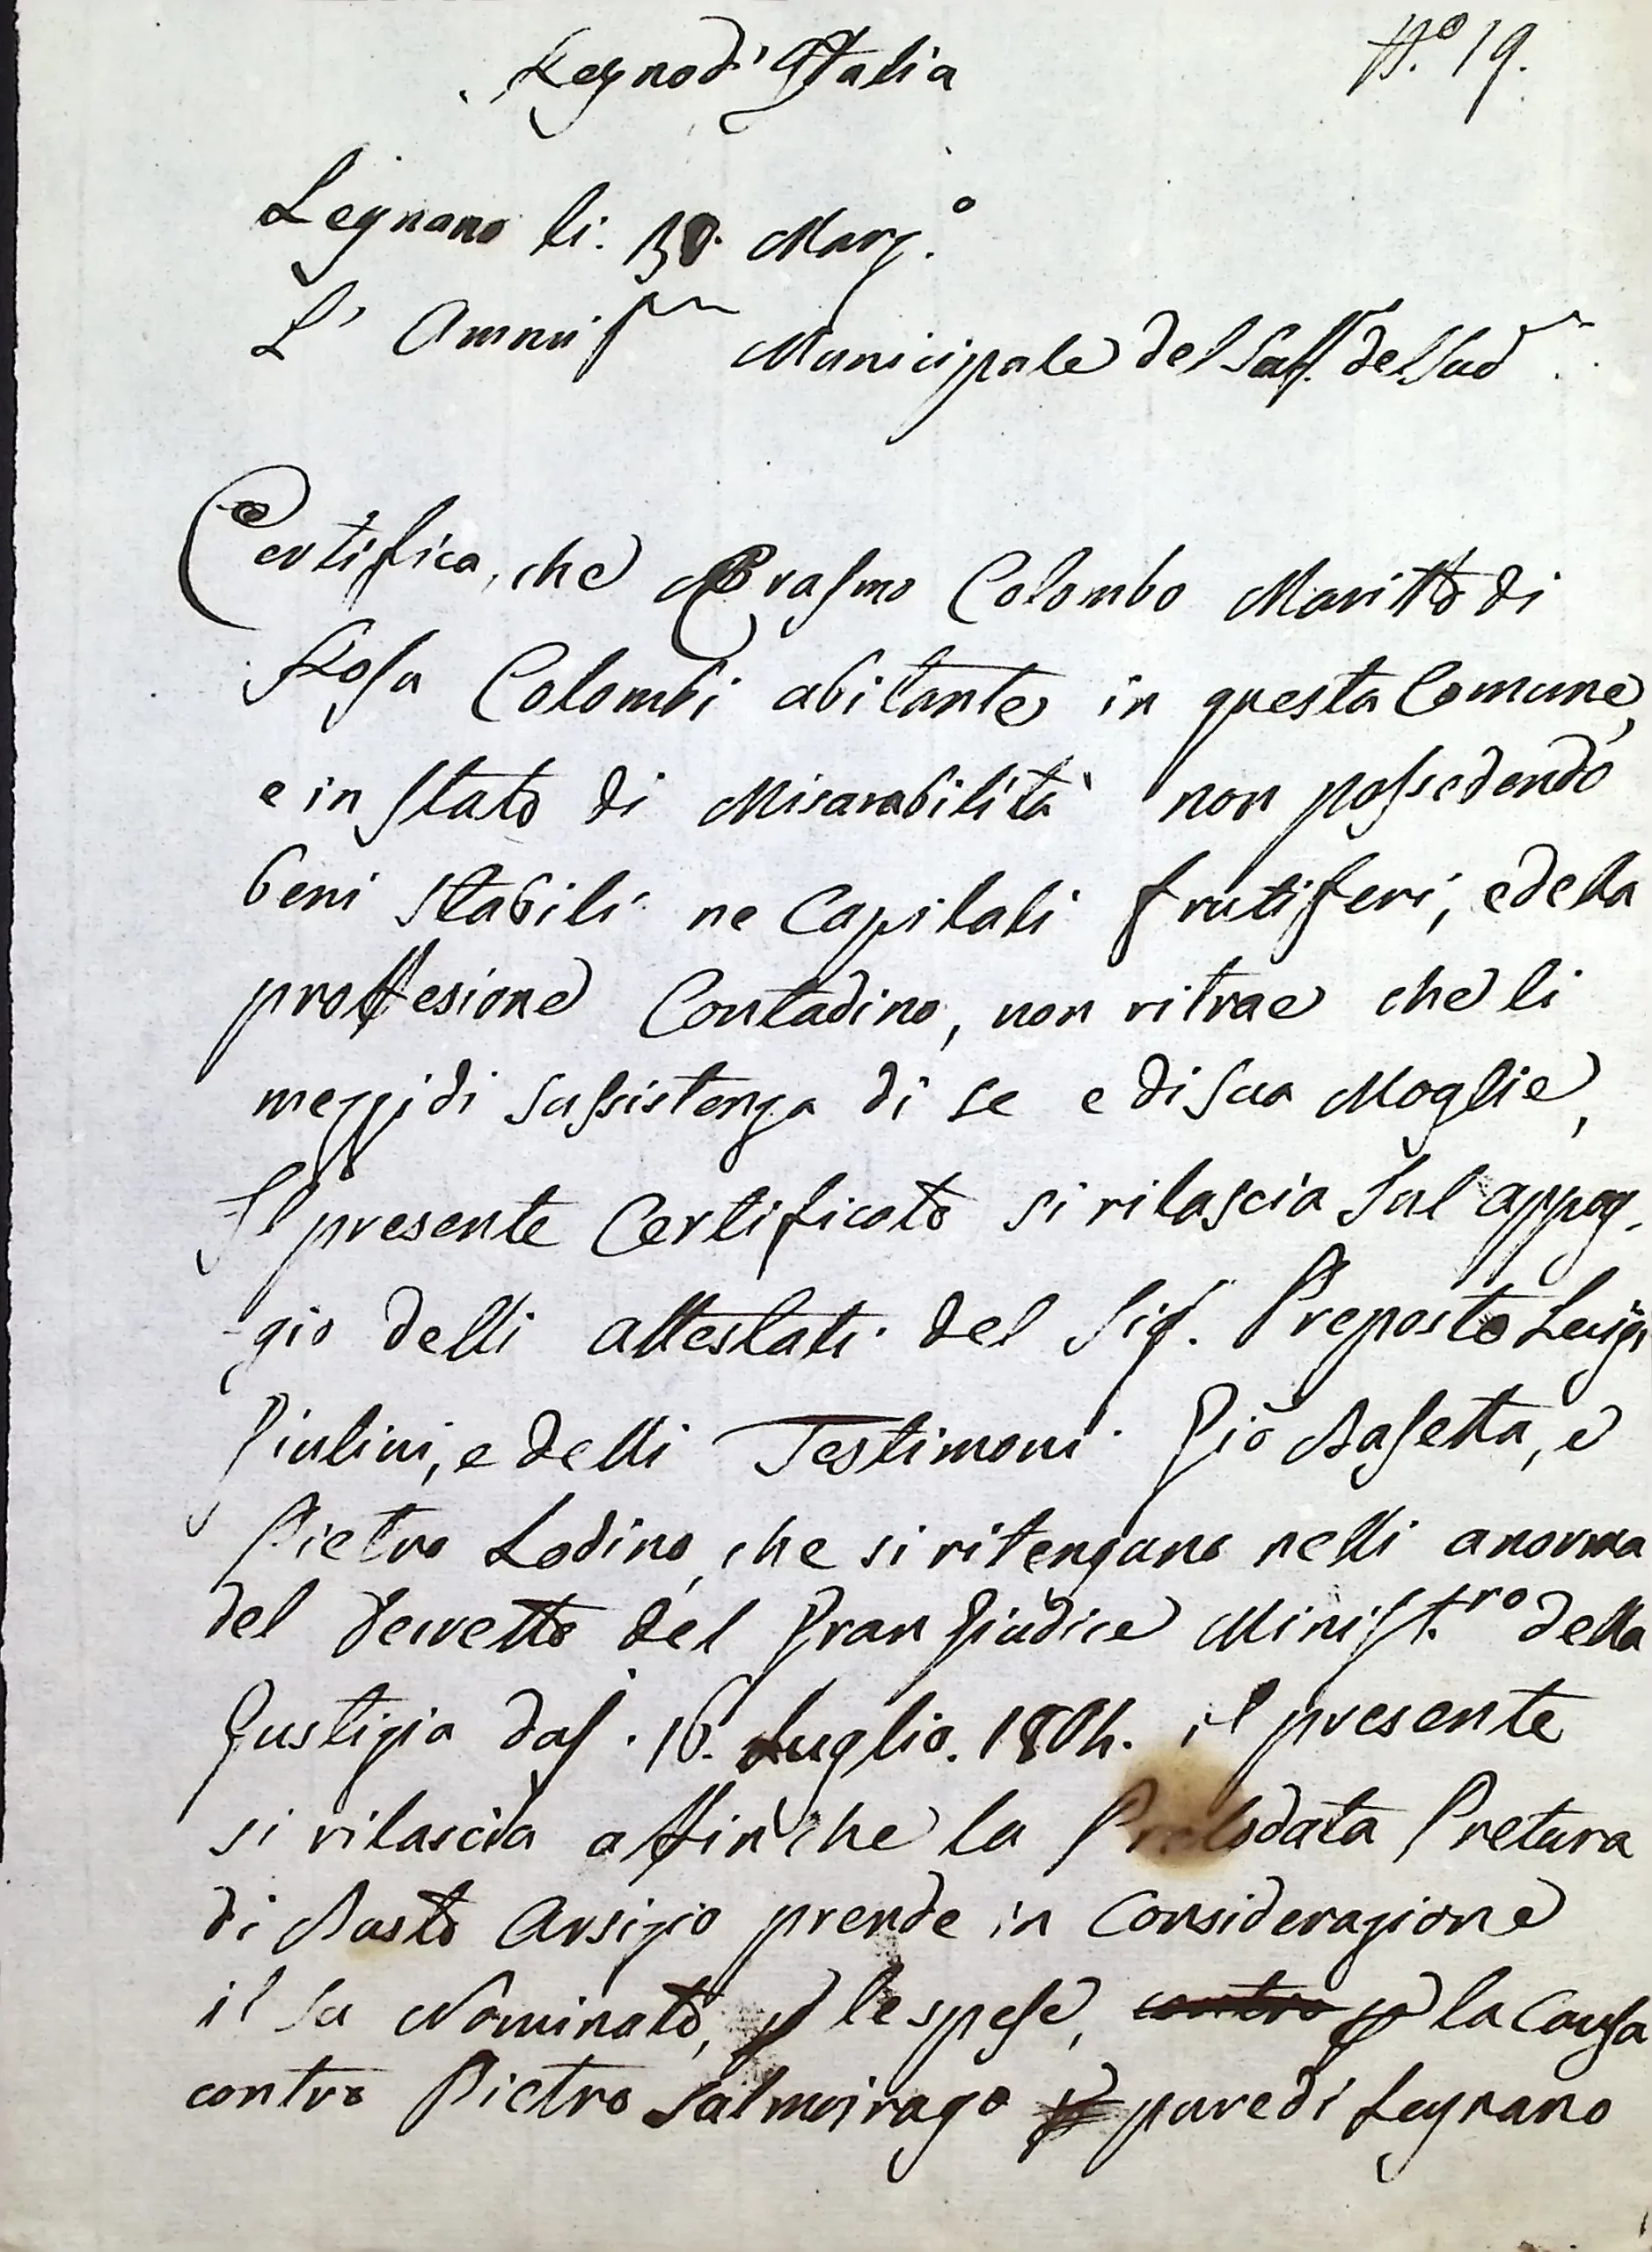 Regno d'Italia
N.º 19.
Legnano li. 30. Marz.º
L' Municipale del del
Certifica, che Erasmo Colombo Maritto di
Rosa Colombi abitante in questa Comune,
e in stato di Misarabilità non possedendo
beni stabili ne Capitali frutiferi, e della
proffesione Contadino, non ritrae che li
mezzi di sussistenza di se e di sua Moglie,
Il presente Certificato si rilascia sul appog-
gio delli attestati del Sig. Preposto Luigi
Giulini, e delli Testimoni Giō Basetta, e
Pietro Lodino, che si ritengano nelli anorma
del Decretto del Gran Giudice Minist.ro della
Gustizia 16. Luglio. 1804. il presente
si rilascia affinche la Prelodata Pretura
di Busto Arsizio prende in Considerazione
il su Nominato, p le spese, contro p la Causa
contro Pietro Salmoirago pure di Legnano